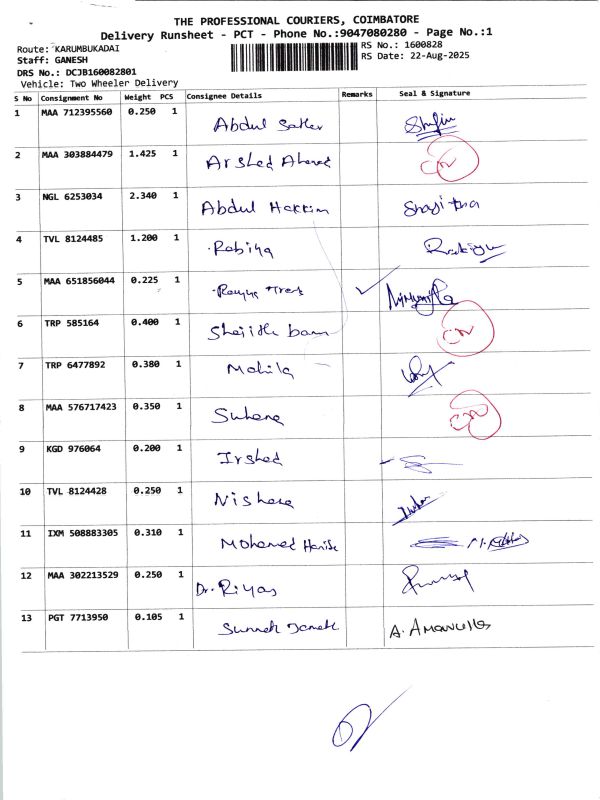 THE PROFESSIONAL COURIERS, COIMBATORE
Delivery Runsheet - PCT - Phone No.:9047080280 - Page No.:1
Route: KARUMBUKADAI RS No.: 1600828
Staff: GANESH RS Date: 22-Aug-2025
DRS No.: DCJB160082801
Vehicle: Two Wheeler Delivery
S No Consignment No Weight PCS Consignee Details Remarks Seal & Signature
1 MAA 712395560 0.250 1 Abdul
2 MAA 303884479 1.425 1 Arshed Ahamed
3 NGL 6253034 2.340 1 Abdul Hakkim
4 TVL 8124485 1.200 1 Rabiya
5 MAA 651856044 0.225 1
6 TRP 585164 0.400 1
7 TRP 6477892 0.380 1
8 MAA 576717423 0.350 1 Suhana
9 KGD 976064 0.200 1 Irshed
10 TVL 8124428 0.250 1
11 IXM 508883305 0.310 1 Mohamed
12 MAA 302213529 0.250 1 Dr. Riyas
13 PGT 7713950 0.105 1 A. Amanulla